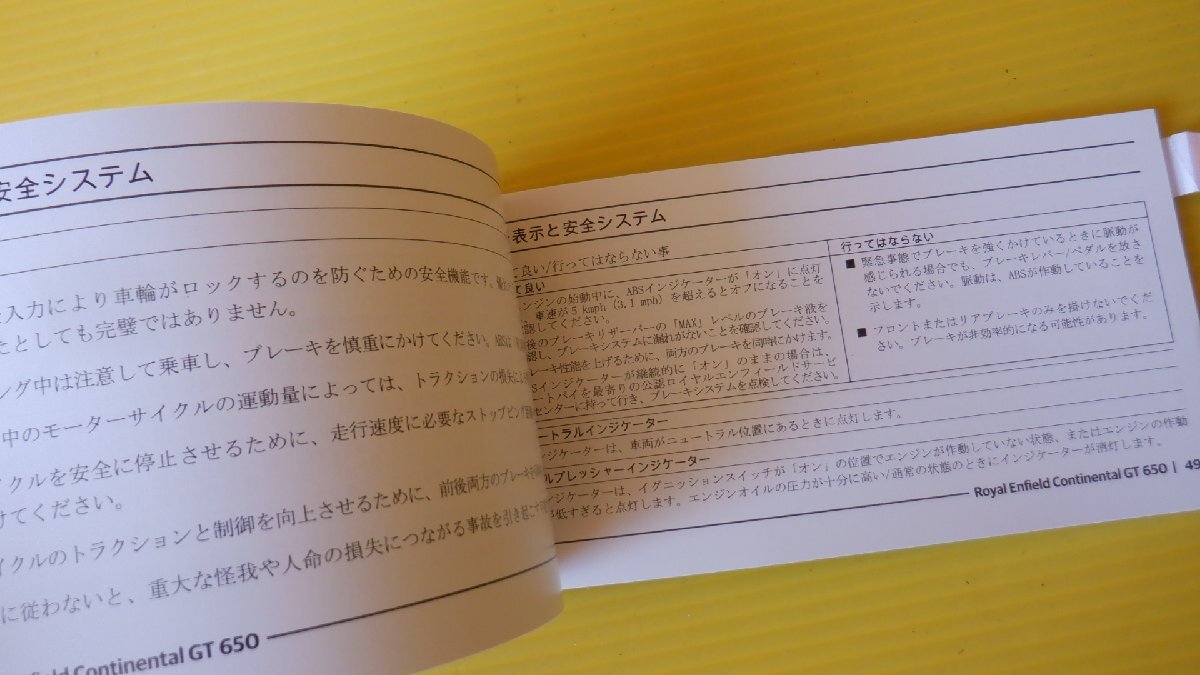 安全システム
入力により車輪がロックするのを防ぐための安全機能です。
たとしても完璧ではありません。
ング中は注意して乗車し、ブレーキを慎重にかけてください。ABSは
中のモーターサイクルの運動量によっては、トラクションの損失に
イクルを安全に停止させるために、走行速度に必要なストッピング
けてください。
イクルのトラクションと制御を向上させるために、前後両方のブレーキを
に従わないと、重大な怪我や人命の損失につながる事故を引き起こす
nfield Continental GT 650
表示と安全システム
良い/行ってはならない事
て良い
ンジンの始動中に、ABSインジケーターが「オン」に点灯
、車速が5 kmph (3.1 mph) を超えるとオフになることを
認してください。
後のブレーキリザーバーの「MAX」レベルのブレーキ液を
認し、ブレーキシステムに漏れがないことを確認してください。
レーキ性能を上げるために、両方のブレーキを同時にかけます。
Sインジケーターが継続的に「オン」のままの場合は、
ートバイを最寄りの公認ロイヤルエンフィールドサービ
センターに持って行き、ブレーキシステムを点検してください。
行ってはならない
■ 緊急事態でブレーキを強くかけているときに脈動が
感じられる場合でも、ブレーキレバー/ペダルを放さ
ないでください。脈動は、ABSが作動していることを
示します。
■ フロントまたはリアブレーキのみを掛けないでくだ
さい。ブレーキが非効率的になる可能性があります。
ートラルインジケーター
ンジケーターは、車両がニュートラル位置にあるときに点灯します。
ルプレッシャーインジケーター
ンジケーターは、イグニッションスイッチが「オン」の位置でエンジンが作動していない状態、またはエンジンの作動
が低すぎると点灯します。エンジンオイルの圧力が十分に高い/通常の状態のときにインジケーターが消灯します。
Royal Enfield Continental GT 650 | 49